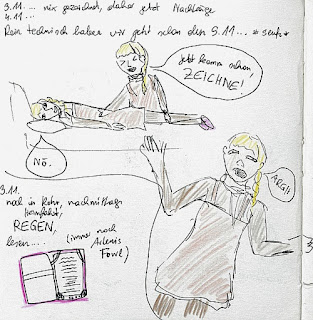 3.11.... nix gezeichnet, daher jetzt Nachträge
4.11....
Rein technisch haben wir jetzt schon den 5.11.... *seufz*
Jetzt komm schon!
ZEICHNE!
Nö.
ARGH
3.11.
noch in Rohr, nachmittags
heimfahrt,
REGEN,
lesen....
(immer noch
Artemis
Fowl)